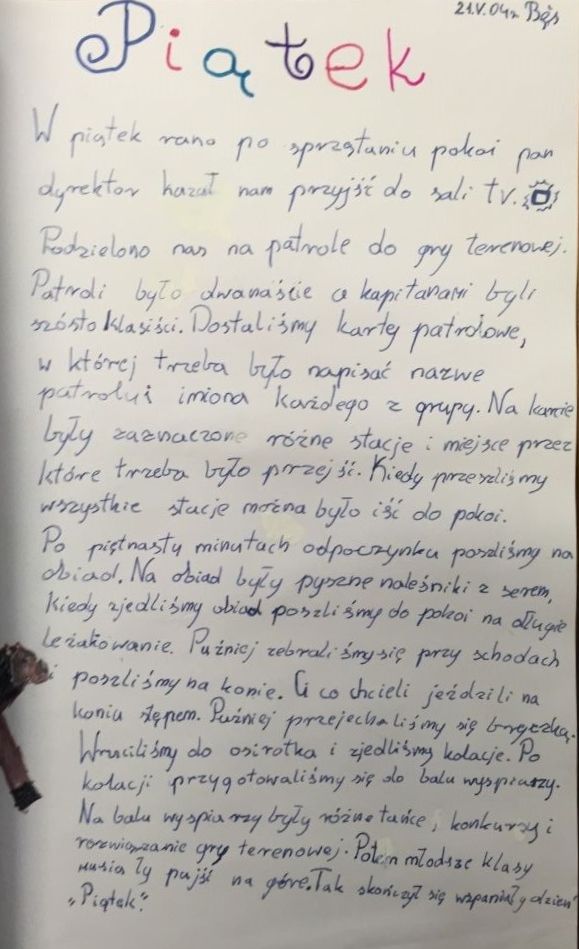 21.V.04r Bąs
Piątek
W piątek rano po sprzątaniu pokoi pan
dyrektor kazał nam przyjść do sali TV.
Podzielono nas na patrole do gry terenowej.
Patroli było dwanaście a kapitanami byli
szósto klasiści. Dostaliśmy kartę patrolowe,
w której trzeba było napisać nazwe
patrolu i imiona każdego z grupy. Na karcie
były zaznaczone różne stacje i miejsce przez
które trzeba było przejść. Kiedy przeszliśmy
wszystkie stacje można było iść do pokoi.
Po piętnastu minutach odpoczynku poszliśmy na
obiad. Na obiad były pyszne naleśniki z serem,
Kiedy zjedliśmy obiad poszliśmy do pokoi na długie
leżakowanie. Puźniej zebraliśmy się przy schodach
i poszliśmy na konie. Ci co chcieli jeździli na
koniu stępem. Puźniej przejechaliśmy się bryczką.
Wruciliśmy do osirotka i zjedliśmy kolacje. Po
kolacji przygotowaliśmy się do balu wyspiarzy.
Na balu wyspiarzy były różne tańce, konkursy i
rozwiązanie gry terenowej. Potem młodsze klasy
musiały pujść na góre. Tak skończył się wspaniały dzień
„Piątek".